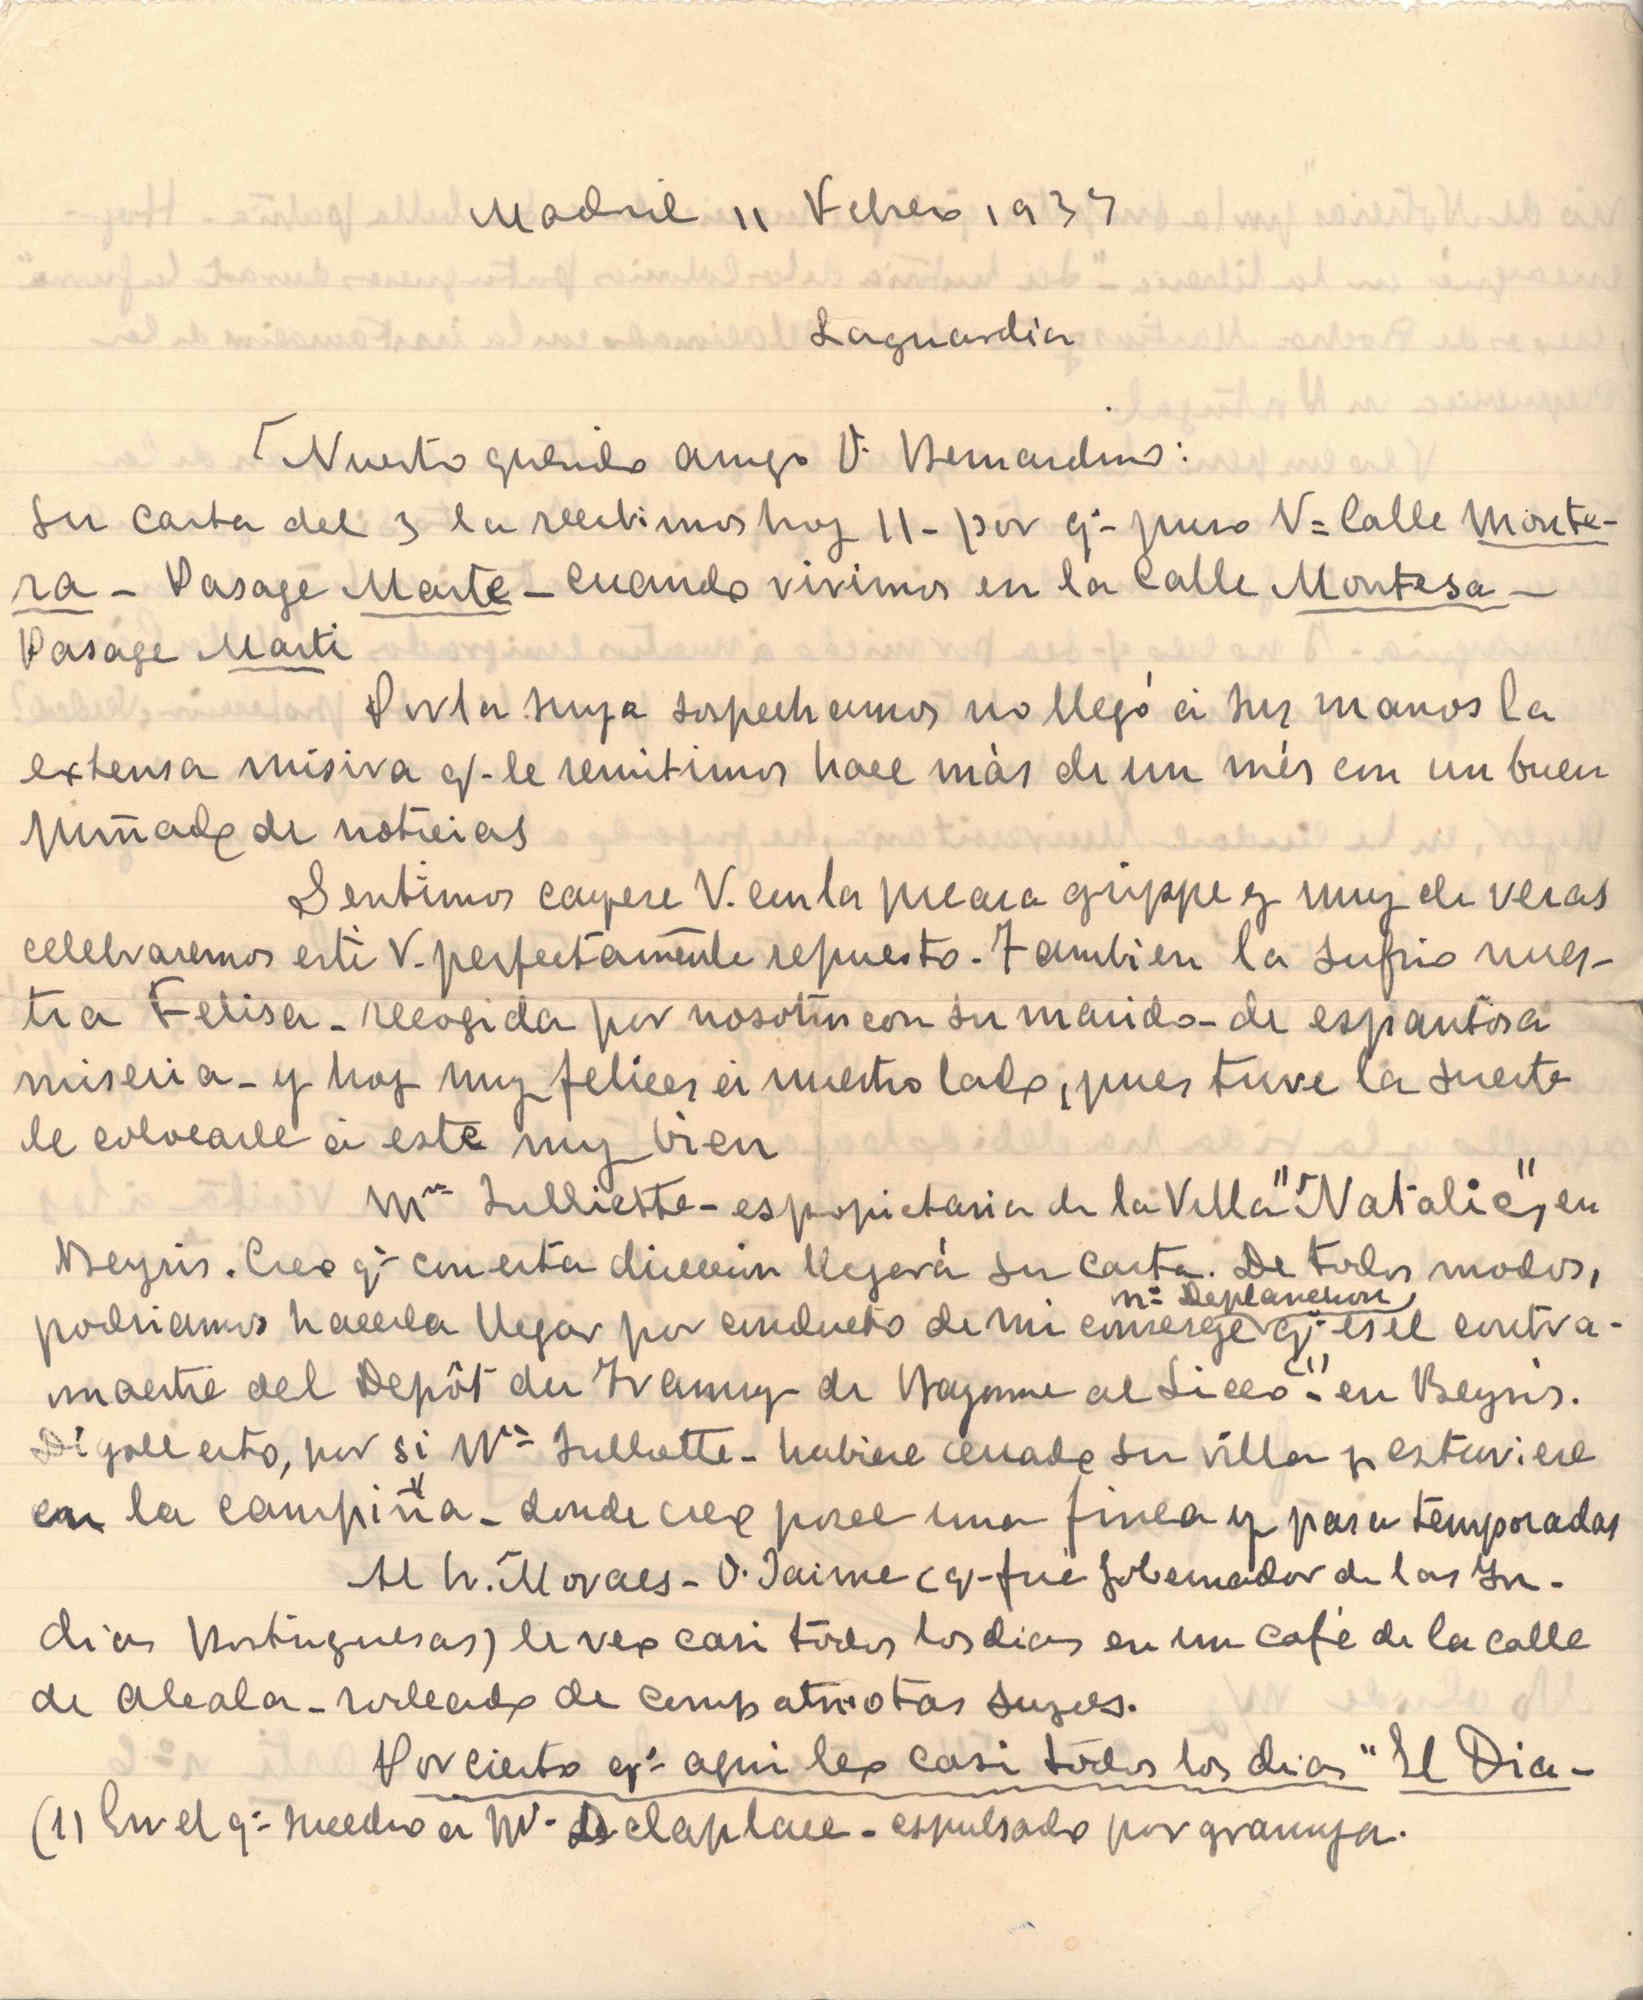 Madrid 11 Febrero 1937
Laguardia
Nuestro querido amigo D. Bernardino:
Su carta del 3 la recibimos hoy 11 - por q.- puso V= Calle Monte-
ra - Pasage Marte - cuando vivimos en la calle Montesa -
Pasage Marti
Por la suya sospechamos no llegó á sus manos la
extensa misiva q.- le remitimos hace más de un més con un buen
puñado de noticias
Sentimos cayese V. con la picara grippe y muy de veras
celebraremos esté V. perfectamente repuesto. Tambien la sufrio nues-
tra Felisa - recogida por nosotros con su marido - de espantosa
miseria - y hoy muy felices á nuestro lado, pues tuve la suerte
de colocarle á este muy bien
Mme Julliette - es propietaria de la Villa "Natalie", en
Beyris. Creo q.- con esta direccion llegará su carta. De todos modos,
mr Deplanchon
podriamos hacerla llegar por conducto de mi conserge q.- es el contra-
maestre del Depôt du Tramway de Bayonne al Liceo (1) - en Beyris.
Dígolle esto, por si Mme Julliette - hubiese cerrado su villa y estuviese
en la campiña - donde creo posee una finca y pasa temporadas
Al Sr. Moraes - D. Jaime (q.- fué Gobernador de las In-
dias Portuguesas) le veo casi todos los dias en un café de la calle
de Alcala - rodeado de compatriotas suyos.
Por cierto q.- aqui leo casi todos los dias "El Dia-
(1) En el q.- sucedio a Mr. Delaplace - espulsado por granuja.